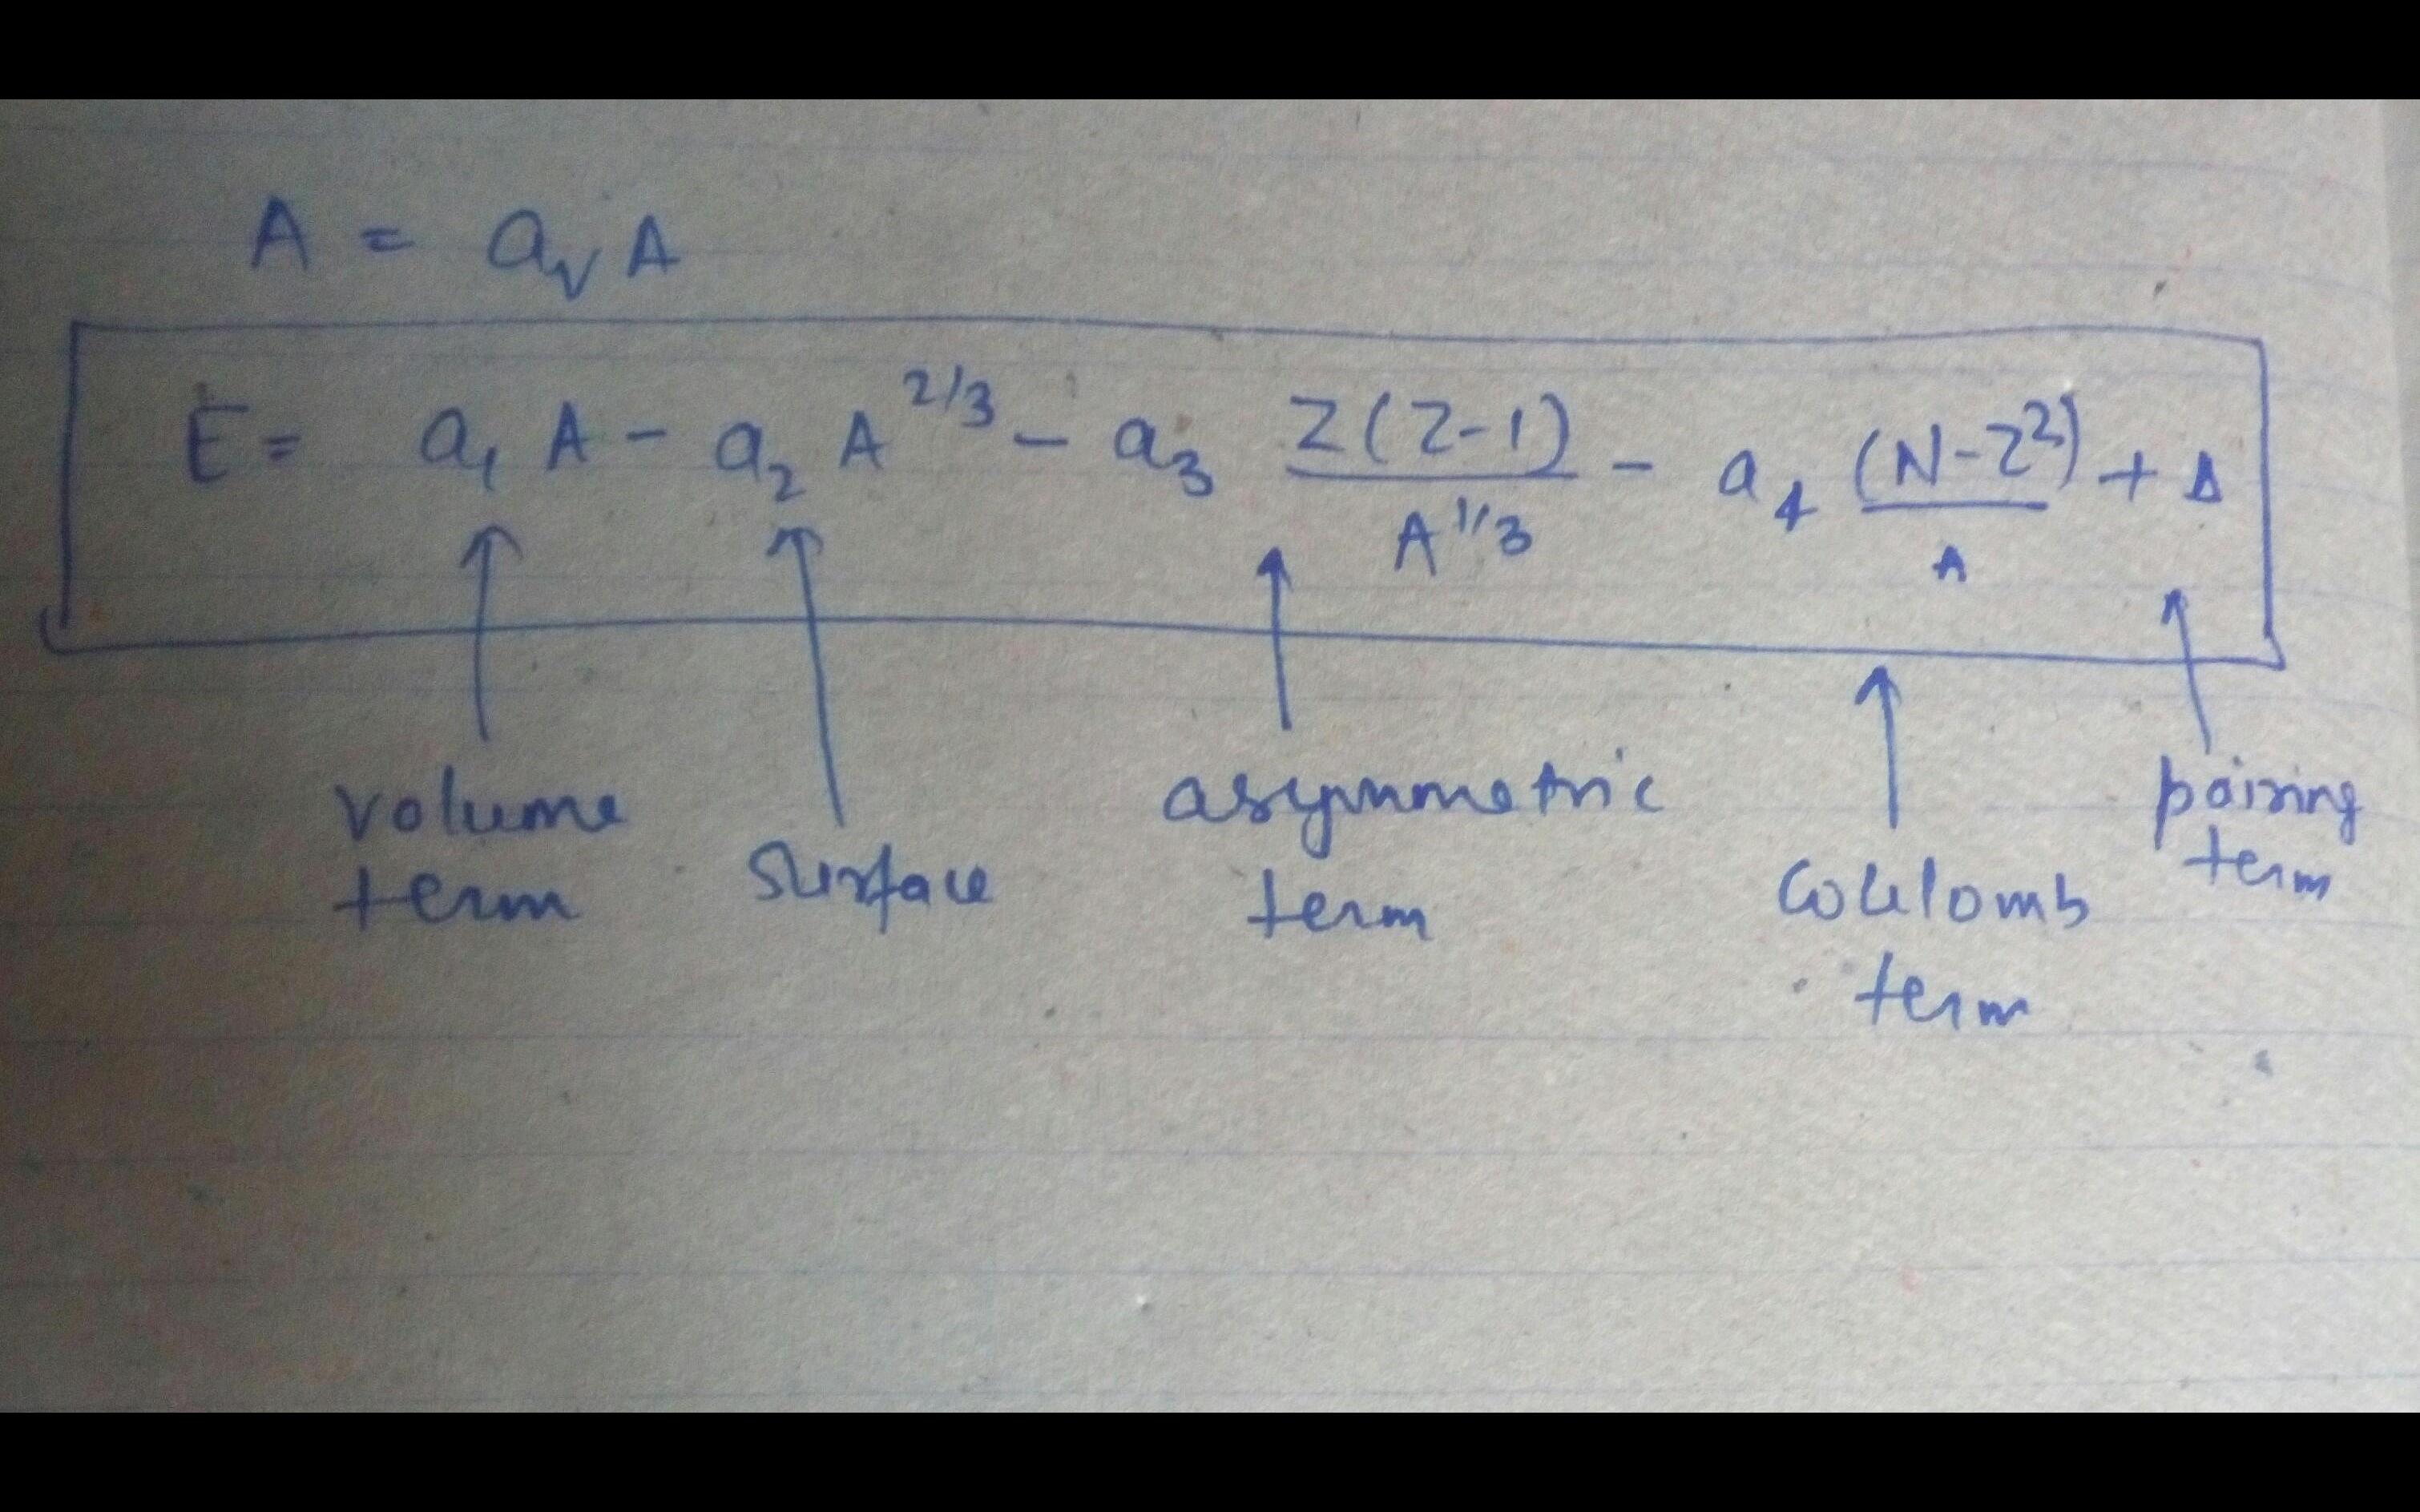 A = aᵥ A
E = a₁ A - a₂ A^2/3 - a₃ Z(Z-1)/A^1/3 - a₄ (N-Z²)/A + Δ
volume term
surface
asymmetric term
Coulomb term
pairing term